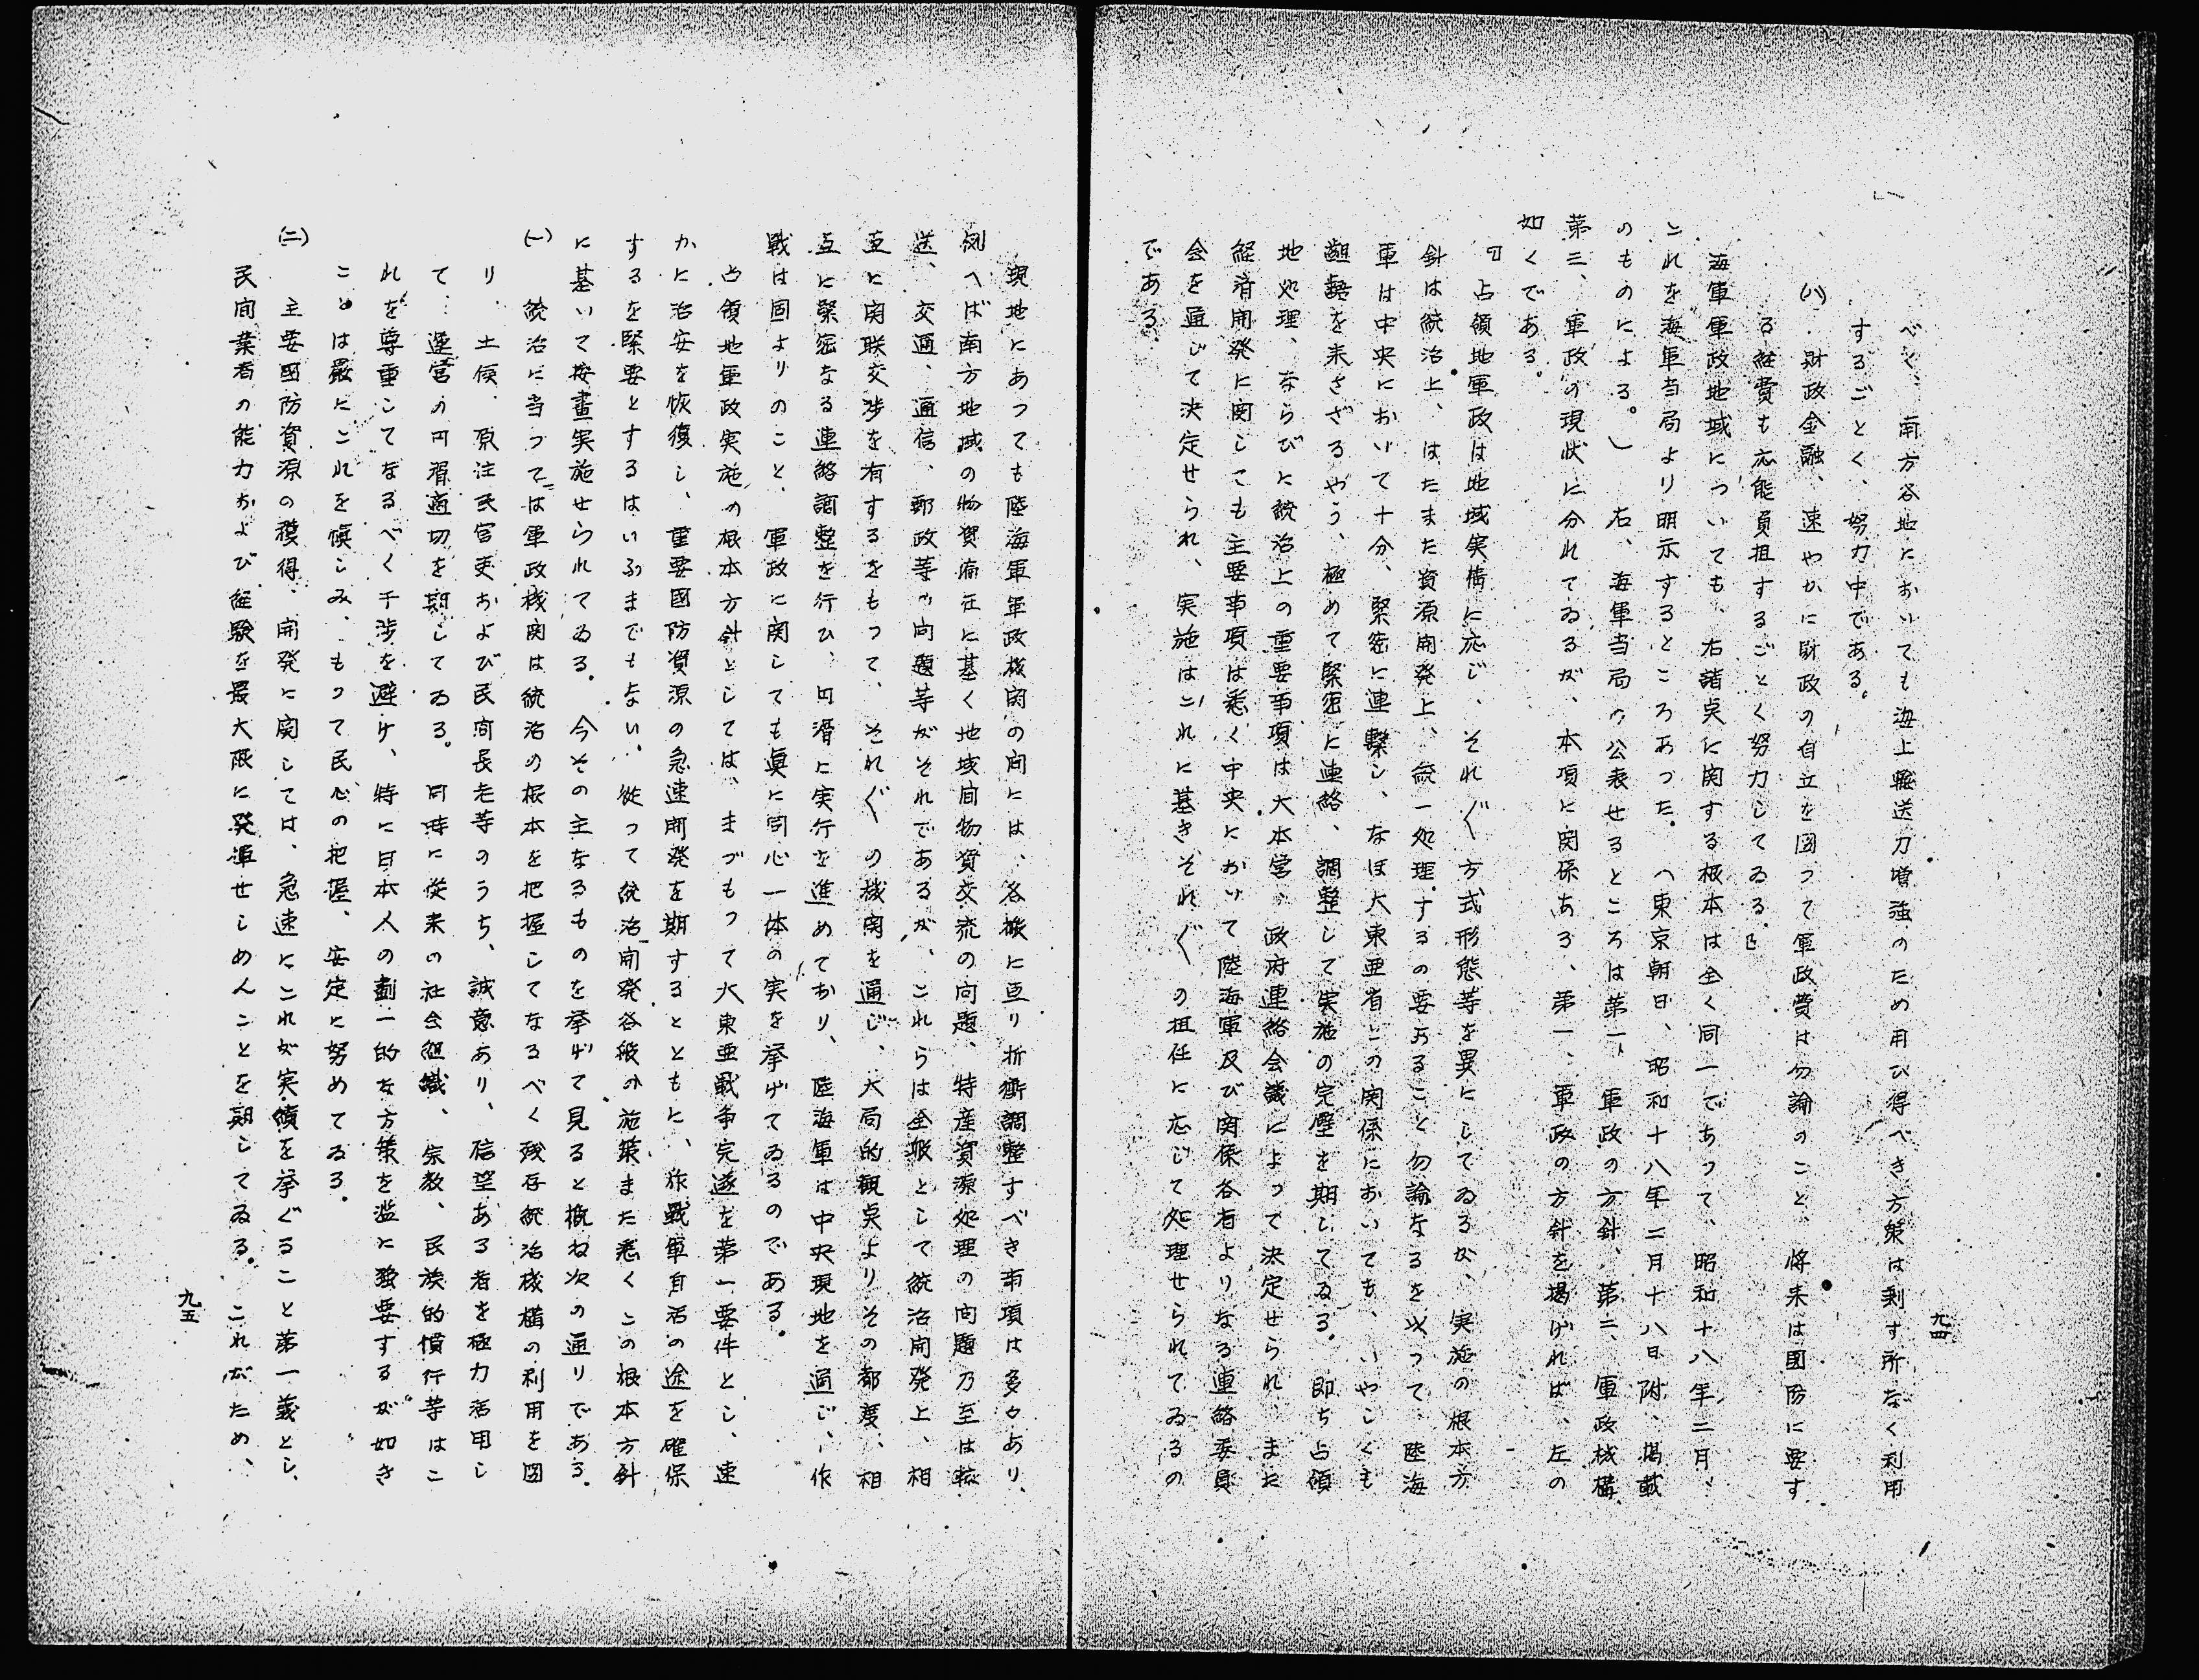 九四
べく、南方各地においても海上輸送力増強のため用ひ得べき方策は剰す所なく利用
するごとく、努力中である。
(八)財政金融、速やかに財政の自立を図つて軍政費は勿論のこと、将来は国防に要す
る経費も応能負担するごとく努力してゐる。』
海軍軍政地域についても、右諸点に関する根本は全く同一であつて、昭和十八年二月、
これを海軍当局より明示するところあつた。(東京朝日、昭和十八年二月十八日附、掲載
のものによる。)右、海軍当局の公表せるところは第一、軍政の方針、第二、軍政機構、
第三、軍政の現状に分れてゐるが、本項に関係ある、第一、軍政の方針を掲げれば、左の
如くである。
『占領地軍政は地域実情に応じ、それ〴〵方式形態等を異にしてゐるが、実施の根本方
針は統治上、はたまた資源開発上、統一処理するの要あること勿論なるを以つて、陸海
軍は中央において十分、緊密に連繋し、なほ大東亜省との関係においても、いやしくも
齟齬を来さざるやう、極めて緊密に連絡、調整して実施の完璧を期してゐる。即ち占領
地処理、ならびに統治上の重要事項は大本営、政府連絡会議によつて決定せられ、また
経済開発に関しても主要事項は悉く中央において陸海軍及び関係各省よりなる連絡委員
会を通じて決定せられ、実施はこれに基きそれ〴〵の担任に応じて処理せられてゐるの
である。
現地にあつても陸海軍軍政機関の間には、各般に亘り折衝調整すべき事項は多々あり、
例へば南方地域の物資偏在に基く地域間物資交流の問題、特産資源処理の問題乃至は輸
送、交通、通信、郵政等の問題等がそれであるが、これらは全般として統治開発上、相
互に関联交渉を有するをもつて、それ〴〵の機関を通じ、大局的観点よりその都度、相
互に緊密なる連絡調整を行ひ、円滑に実行を進めており、陸海軍は中央現地を通じ、作
戦は固よりのこと、軍政に関しても真に同心一体の実を挙げてゐるのである。
占領地軍政実施の根本方針としては、まづもつて大東亜戦争完遂を第一要件とし、速
かに治安を恢復し、重要国防資源の急速開発を期するとともに、作戦軍自活の途を確保
するを緊要とするはいふまでもない。従つて統治開発各般の施策また悉くこの根本方針
に基いて按画実施せられてゐる。今その主なるものを挙げて見ると概ね次の通りである。
(一)統治に当つては軍政機関は統治の根本を把握してなるべく残存統治機構の利用を図
り、土侯、原注民官吏および民間長老等のうち、誠意あり、信望ある者を極力活用し
て、運営の円滑適切を期してゐる。同時に従来の社会組織、宗教、民族的慣行等はこ
れを尊重してなるべく干渉を避け、特に日本人の劃一的な方策を濫に強要するが如き
ことは厳にこれを慎しみ、もつて民心の把握、安定に努めてゐる。
(二)主要国防資源の獲得、開発に関しては、急速にこれが実績を挙ぐること第一義とし、
民間業者の能力および経験を最大限に発揮せしめんことを期してゐる。これがため、
九五